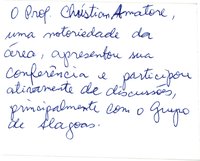 O Prof. Christian Amatore,
uma notoriedade da
área, apresentou sua
conferência e participou
ativamente de discussões,
principalmente com o Grupo
de Alagoas.